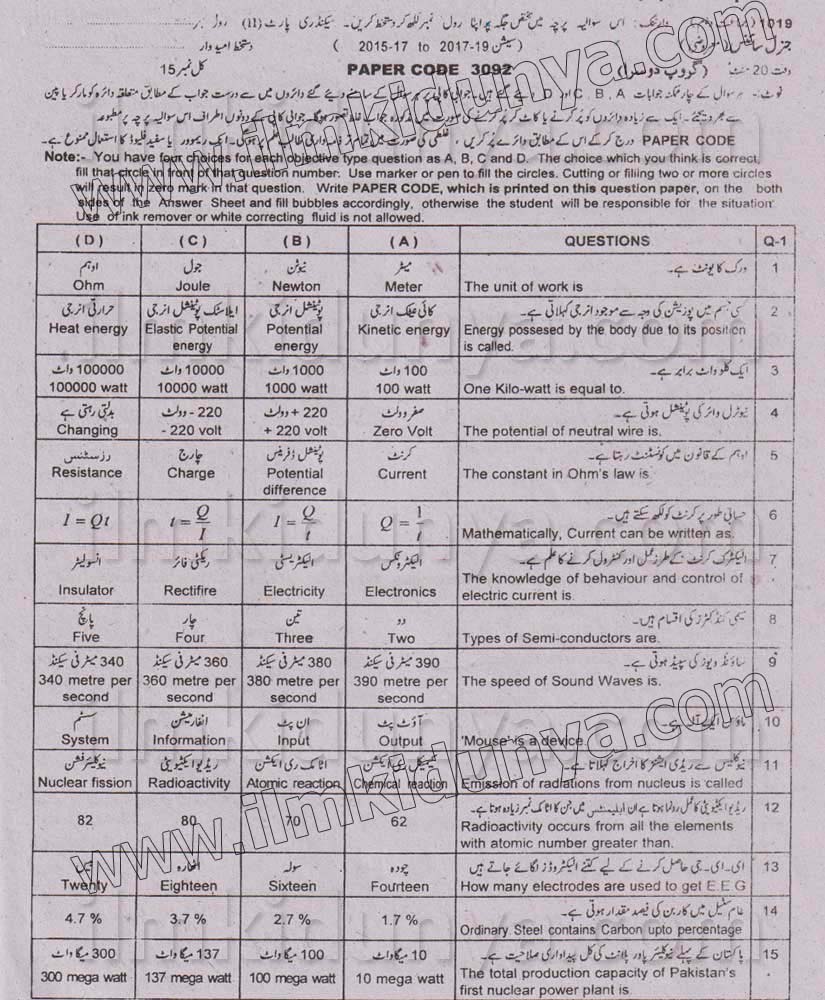 1019
سیکنڈری پارٹ (II)
جنرل سائنس
(سیشن 2015-17 to 2017-19)
دستخط امیدوار
وقت 20 منٹ
(گروپ دوسرا)
PAPER CODE 3092
کل نمبر 15
Note:- You have four choices for each objective type question as A, B, C and D. The choice which you think is correct,
fill that circle in front of that question number. Use marker or pen to fill the circles. Cutting or filling two or more circles
will result in zero mark in that question. Write PAPER CODE, which is printed on this question paper, on the both
sides of the Answer Sheet and fill bubbles accordingly, otherwise the student will be responsible for the situation
Use of ink remover or white correcting fluid is not allowed.
(D) (C) (B) (A) QUESTIONS Q-1
اوہم جول نیوٹن میٹر ورک کا یونٹ ہے۔ 1
Ohm Joule Newton Meter The unit of work is
حرارتی انرجی ایلاسٹک پوٹینشل انرجی پوٹینشل انرجی کائی نیٹک انرجی کسی جسم میں پوزیشن کی وجہ سے موجود انرجی کہلاتی ہے۔ 2
Heat energy Elastic Potential energy Potential energy Kinetic energy Energy possesed by the body due to its position
is called.
100000 واٹ 10000 واٹ 1000 واٹ 100 واٹ ایک کلو واٹ برابر ہے۔ 3
100000 watt 10000 watt 1000 watt 100 watt One Kilo-watt is equal to.
بدلتی رہتی ہے 220 - وولٹ 220 + وولٹ صفر وولٹ نیوٹرل وائر کی پوٹینشل ہوتی ہے۔ 4
Changing - 220 volt + 220 volt Zero Volt The potential of neutral wire is.
رزسٹنس چارج پوٹینشل ڈفرینس کرنٹ اوہم کے قانون میں کونسٹنٹ رہتا ہے۔ 5
Resistance Charge Potential difference Current The constant in Ohm's law is.
I = Qt t = Q/I I = Q/t Q = 1/t حسابی طور پر کرنٹ کو لکھ سکتے ہیں۔ 6
Mathematically, Current can be written as.
انسولیٹر ریکٹی فائر الیکٹریسٹی الیکٹرونکس الیکٹرک کرنٹ کے طرز عمل اور کنٹرول کرنے کا علم ہے۔ 7
Insulator Rectifire Electricity Electronics The knowledge of behaviour and control of
electric current is.
پانچ چار تین دو سیمی کنڈکٹرز کی اقسام ہیں۔ 8
Five Four Three Two Types of Semi-conductors are.
340 میٹر فی سیکنڈ 360 میٹر فی سیکنڈ 380 میٹر فی سیکنڈ 390 میٹر فی سیکنڈ ساؤنڈ ویوز کی سپیڈ ہوتی ہے۔ 9
340 metre per second 360 metre per second 380 metre per second 390 metre per second The speed of Sound Waves is.
سسٹم انفارمیشن ان پٹ آؤٹ پٹ ماؤس ایک آلہ ہے۔ 10
System Information Input Output 'Mouse' is a device.
نیوکلیئر فشن ریڈیو ایکٹیویٹی اٹامک ری ایکشن کیمیکل ری ایکشن نیوکلیس سے ریڈی ایشنز کا اخراج کہلاتا ہے۔ 11
Nuclear fission Radioactivity Atomic reaction Chemical reaction Emission of radiations from nucleus is called
82 80 70 62 ریڈیو ایکٹیویٹی کا عمل رونما ہوتا ہے ان ایلیمنٹس میں جن کا اٹامک نمبر زیادہ ہوتا ہے۔ 12
Radioactivity occurs from all the elements
with atomic number greater than.
اٹھارہ سولہ چودہ ای۔ای۔جی حاصل کرنے کے لیے کتنے الیکٹروڈز لگائے جاتے ہیں 13
Twenty Eighteen Sixteen Fourteen How many electrodes are used to get E.E.G
4.7 % 3.7 % 2.7 % 1.7 % عام سٹیل میں کاربن کی فیصد مقدار ہوتی ہے۔ 14
Ordinary Steel contains Carbon upto percentage
300 میگا واٹ 137 میگا واٹ 100 میگا واٹ 10 میگا واٹ پاکستان کے پہلے نیوکلیئر پاور پلانٹ کی کل پیداواری صلاحیت ہے۔ 15
300 mega watt 137 mega watt 100 mega watt 10 mega watt The total production capacity of Pakistan's
first nuclear power plant is.
www.ilmkidunya.com
www.ilmkidunya.com